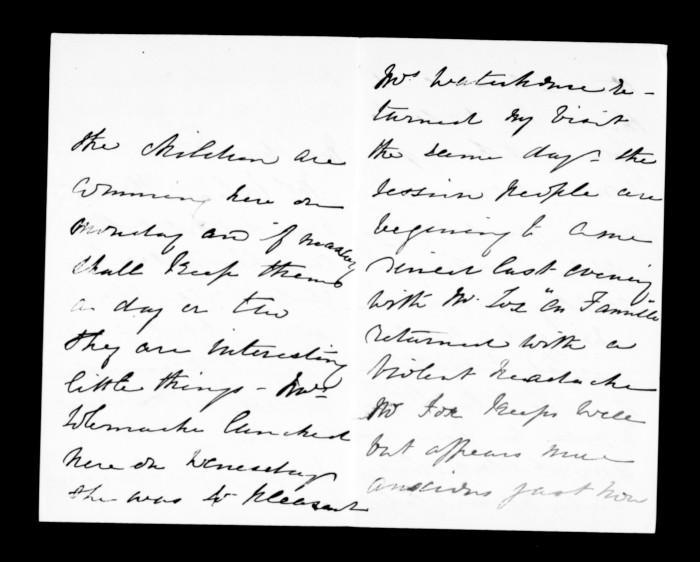 the children are
comming here on
monday and if
shall keep them
a day or two
they are interesting
little things - Mrs
lunched
here on Wenesday
she was so pleasant
Mrs Waterhouse re-
turned my visit
the same day - the
session people are
begening to come
dined last evening
with Mr. Fox "en Famille"
returned with a
violent headache
Mr Fox keeps well
but appears
anxious just now